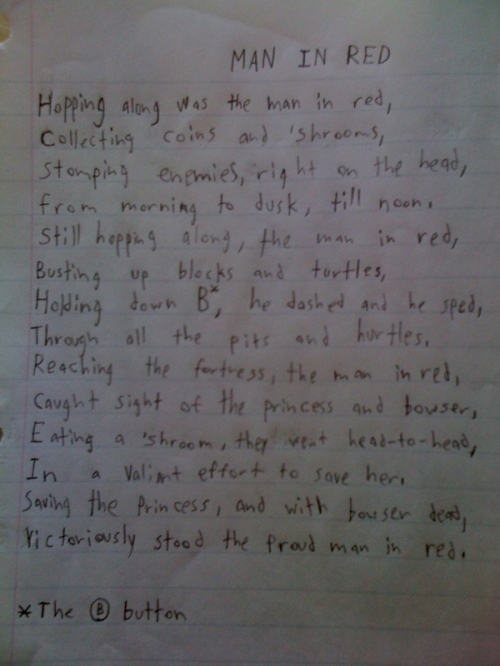 MAN IN RED
Hopping along was the man in red,
Collecting coins and 'shrooms,
Stomping enemies, right on the head,
from morning to dusk, till noon.
Still hopping along, the man in red,
Busting up blocks and turtles,
Holding down B*, he dashed and he sped,
Through all the pits and hurtles.
Reaching the fortress, the man in red,
Caught sight of the princess and bowser,
Eating a 'shroom, they went head-to-head,
In a valiant effort to save her.
Saving the Princess, and with bowser dead,
Victoriously stood the Proud man in red.
*The Ⓑ button